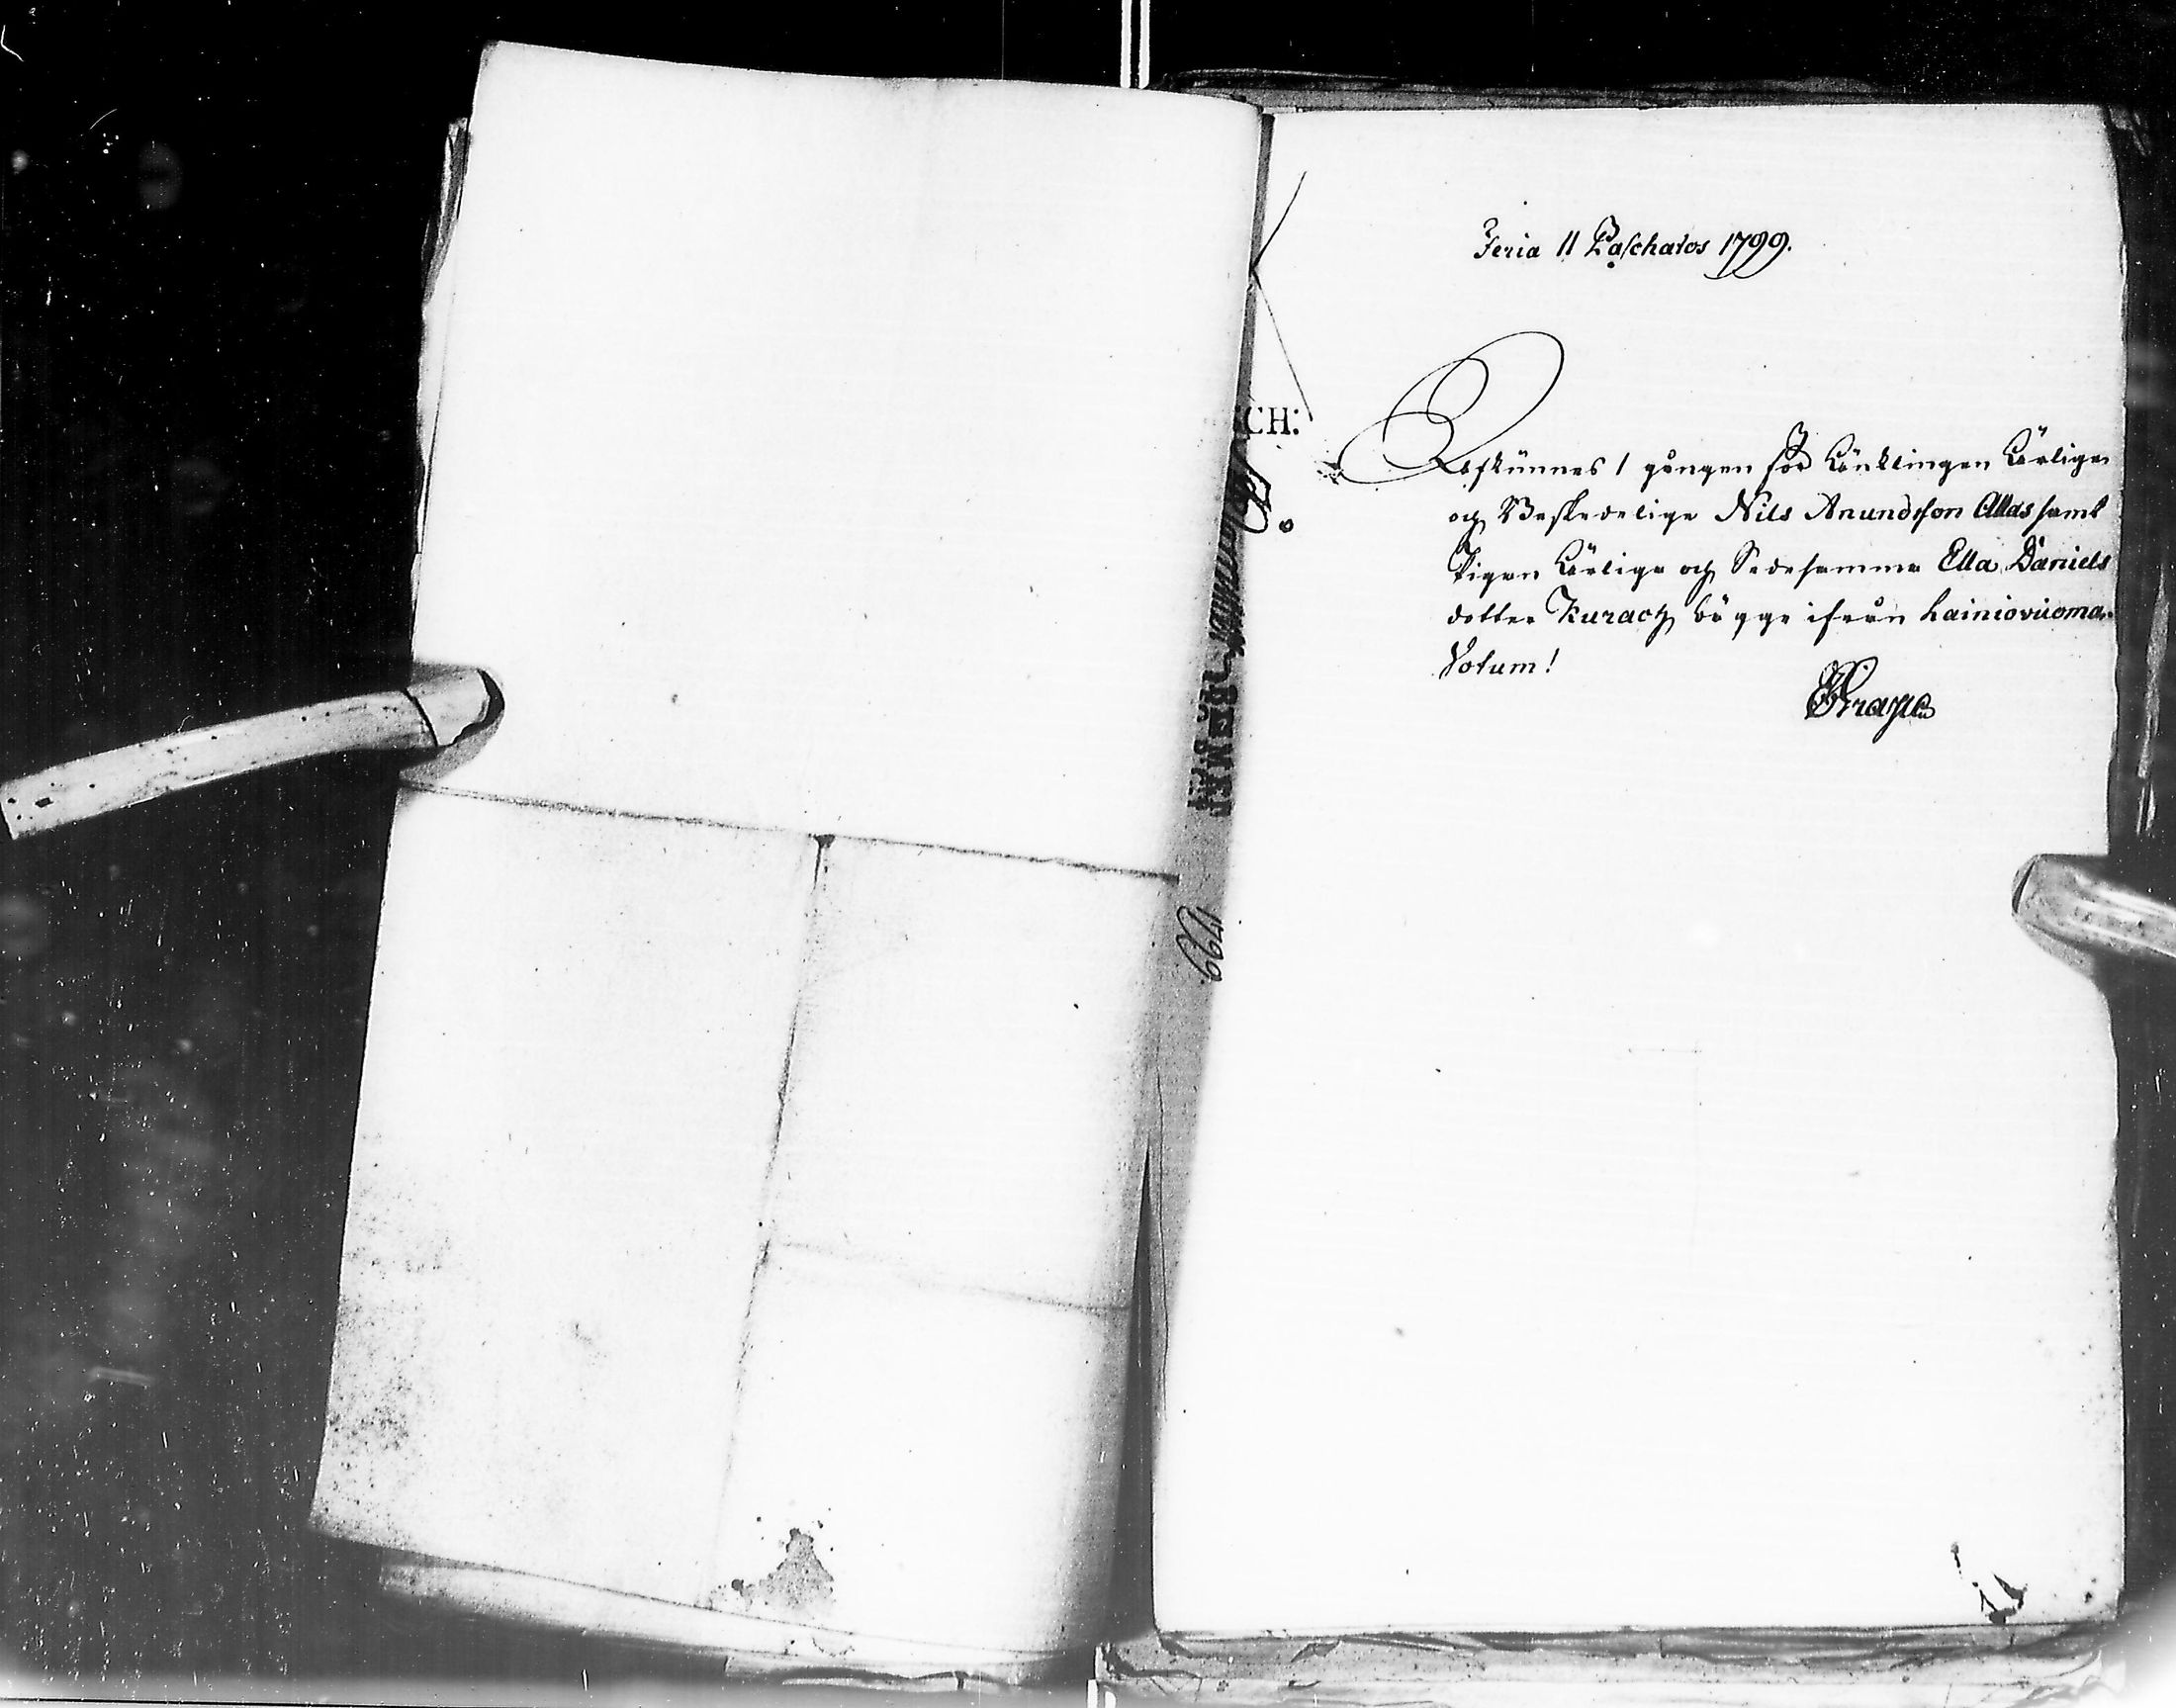 Feria II Paschatos 1799.
Afkunnes 1 gången för Änklingen Ärlige
och Beskedelige Nils Anundsson Allas samt
Pigan Ärliga och Sedesamma Ella Daniels
dotter Kurack, bägge ifrån Lainiovuoma.
Votum!
CH:
1799.